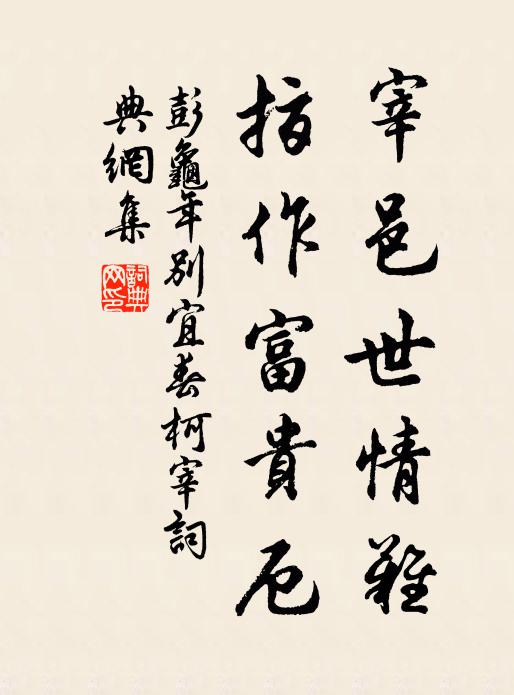 宰邑世情難
指作富貴厄
彭龜年別宜春柯宰詞
典網集
詞典網印